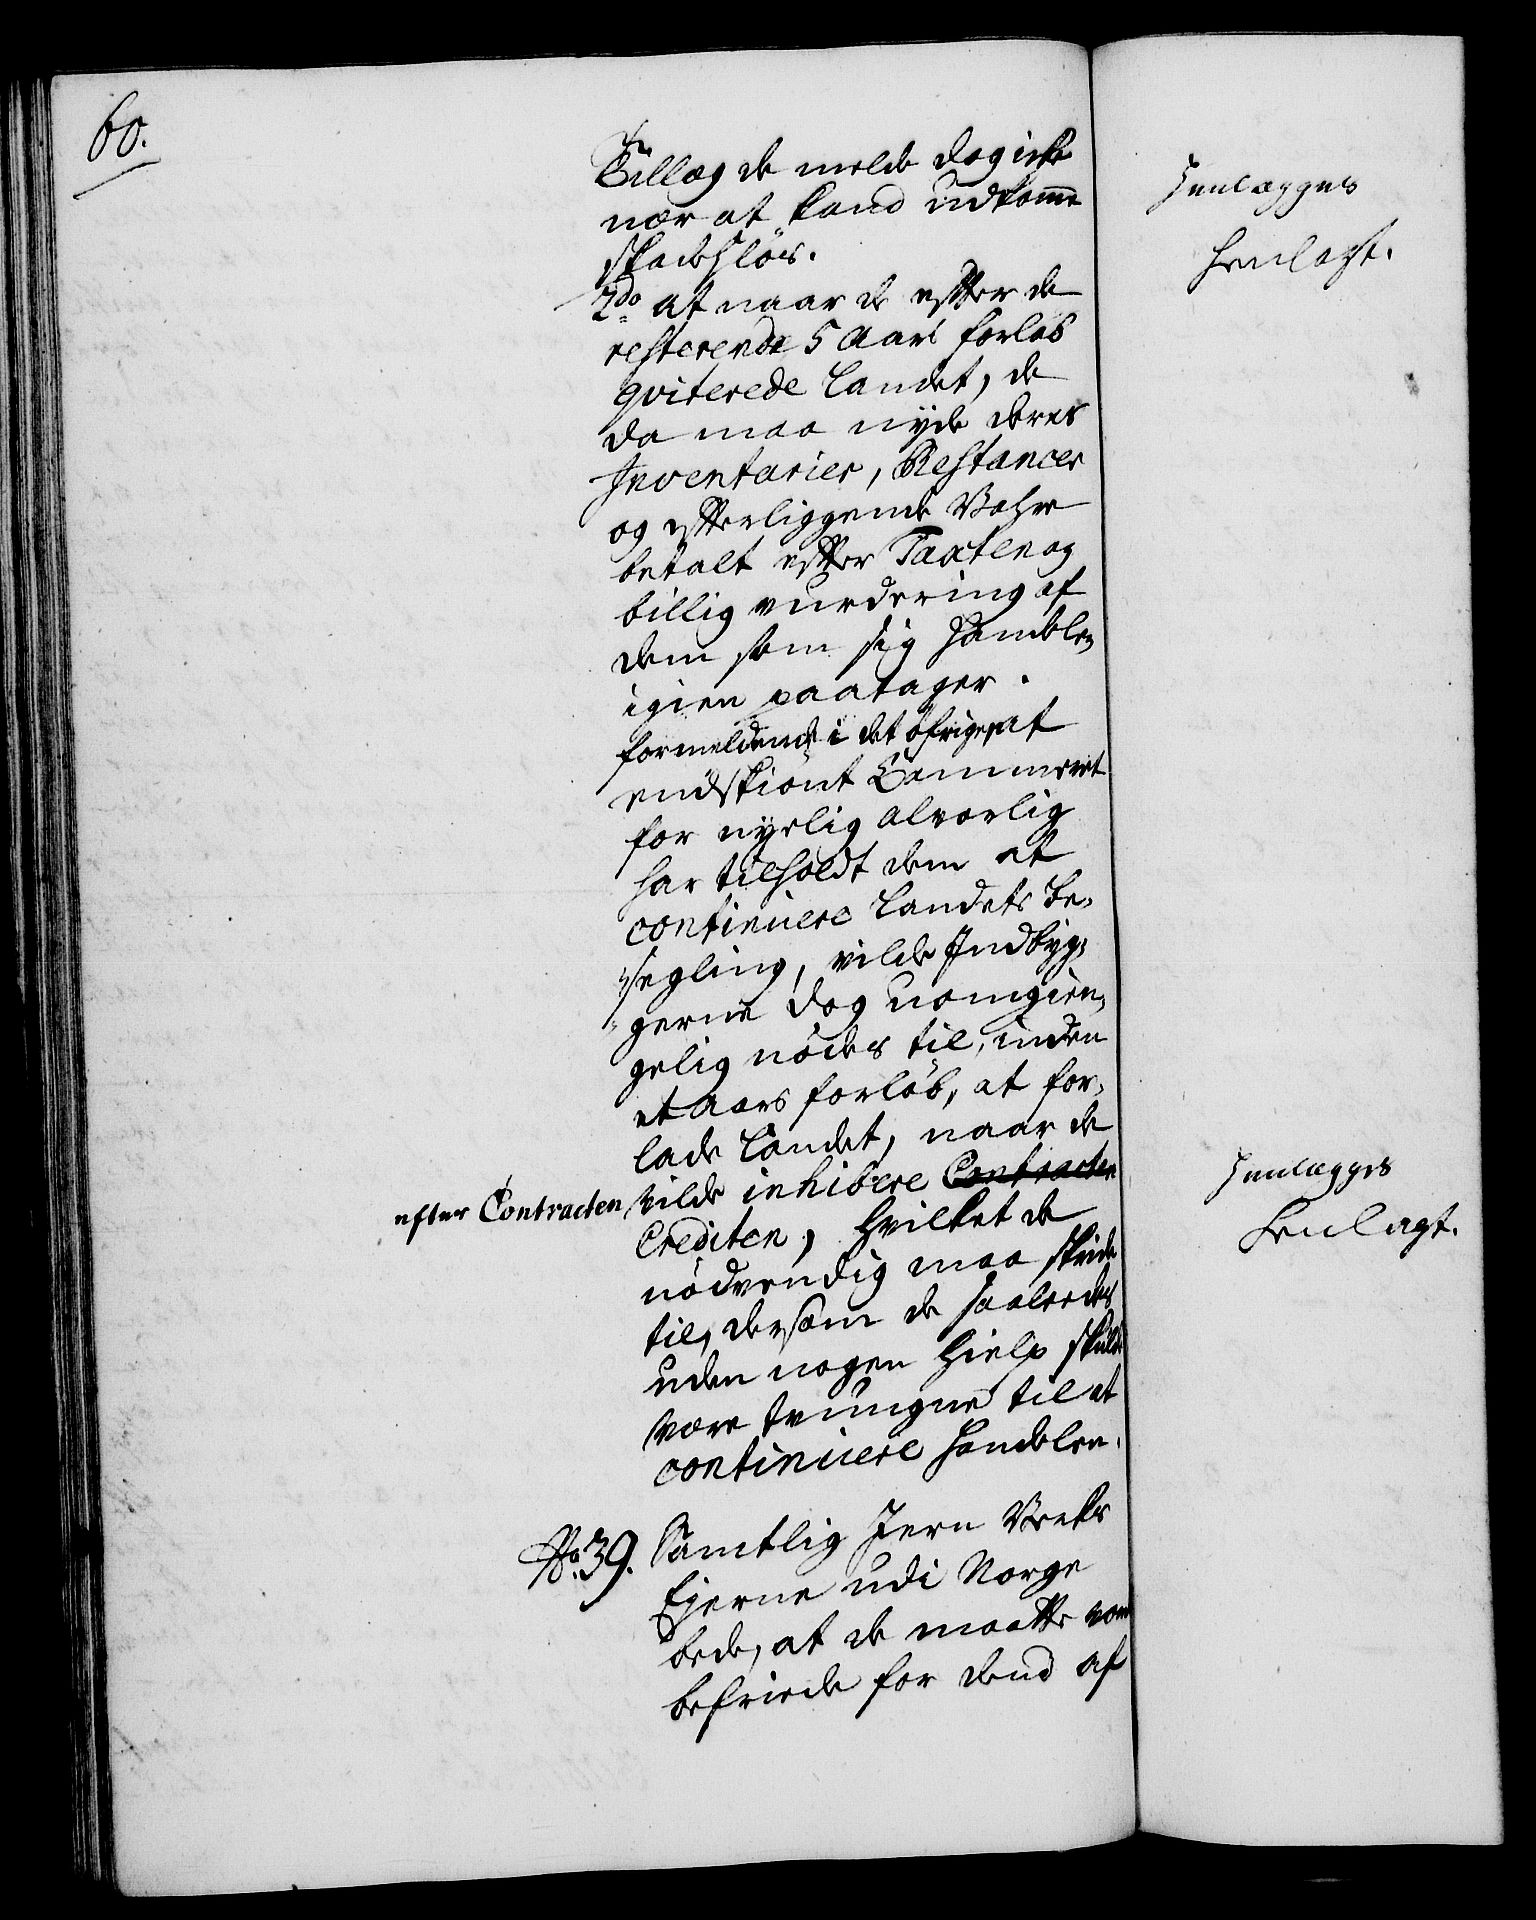 60.
Tillæg de melde dog icke
nær at kand udkomme
skadesløs.
2do at naar de efter de
resterende 5 Aars forløb
qviterede Landet, de
da maa nyde deres
Inventarier, Restancer
og efterliggende Vahre
betalt efter Taxten og
billig vurdering af
dem som sig Handelen
igien paatager.
formeldende i det øfrige, at
endskiønt Cammeret
for nyelig alvorlig
har tilholdt dem at
continuere Landets Be-
segling, vilde Indbyg-
gerne dog uomgien-
gelig nødes til, inden
et Aars forløb, at for-
lade Landet, naar de
efter Contracten vilde inhibere Contracten
Crediten, hvilket de
nødvendig maa skride
til, dersom de saaledes
uden nogen Hielp skulde
være tvungne til at
continuere Handelen.
No. 39. Samtlig Jern Verks
Ejerne udi Norge
bede, at de maatte vorde
befriede for dend af
Henlægges
Henlagt.
Henlægges
Henlagt.